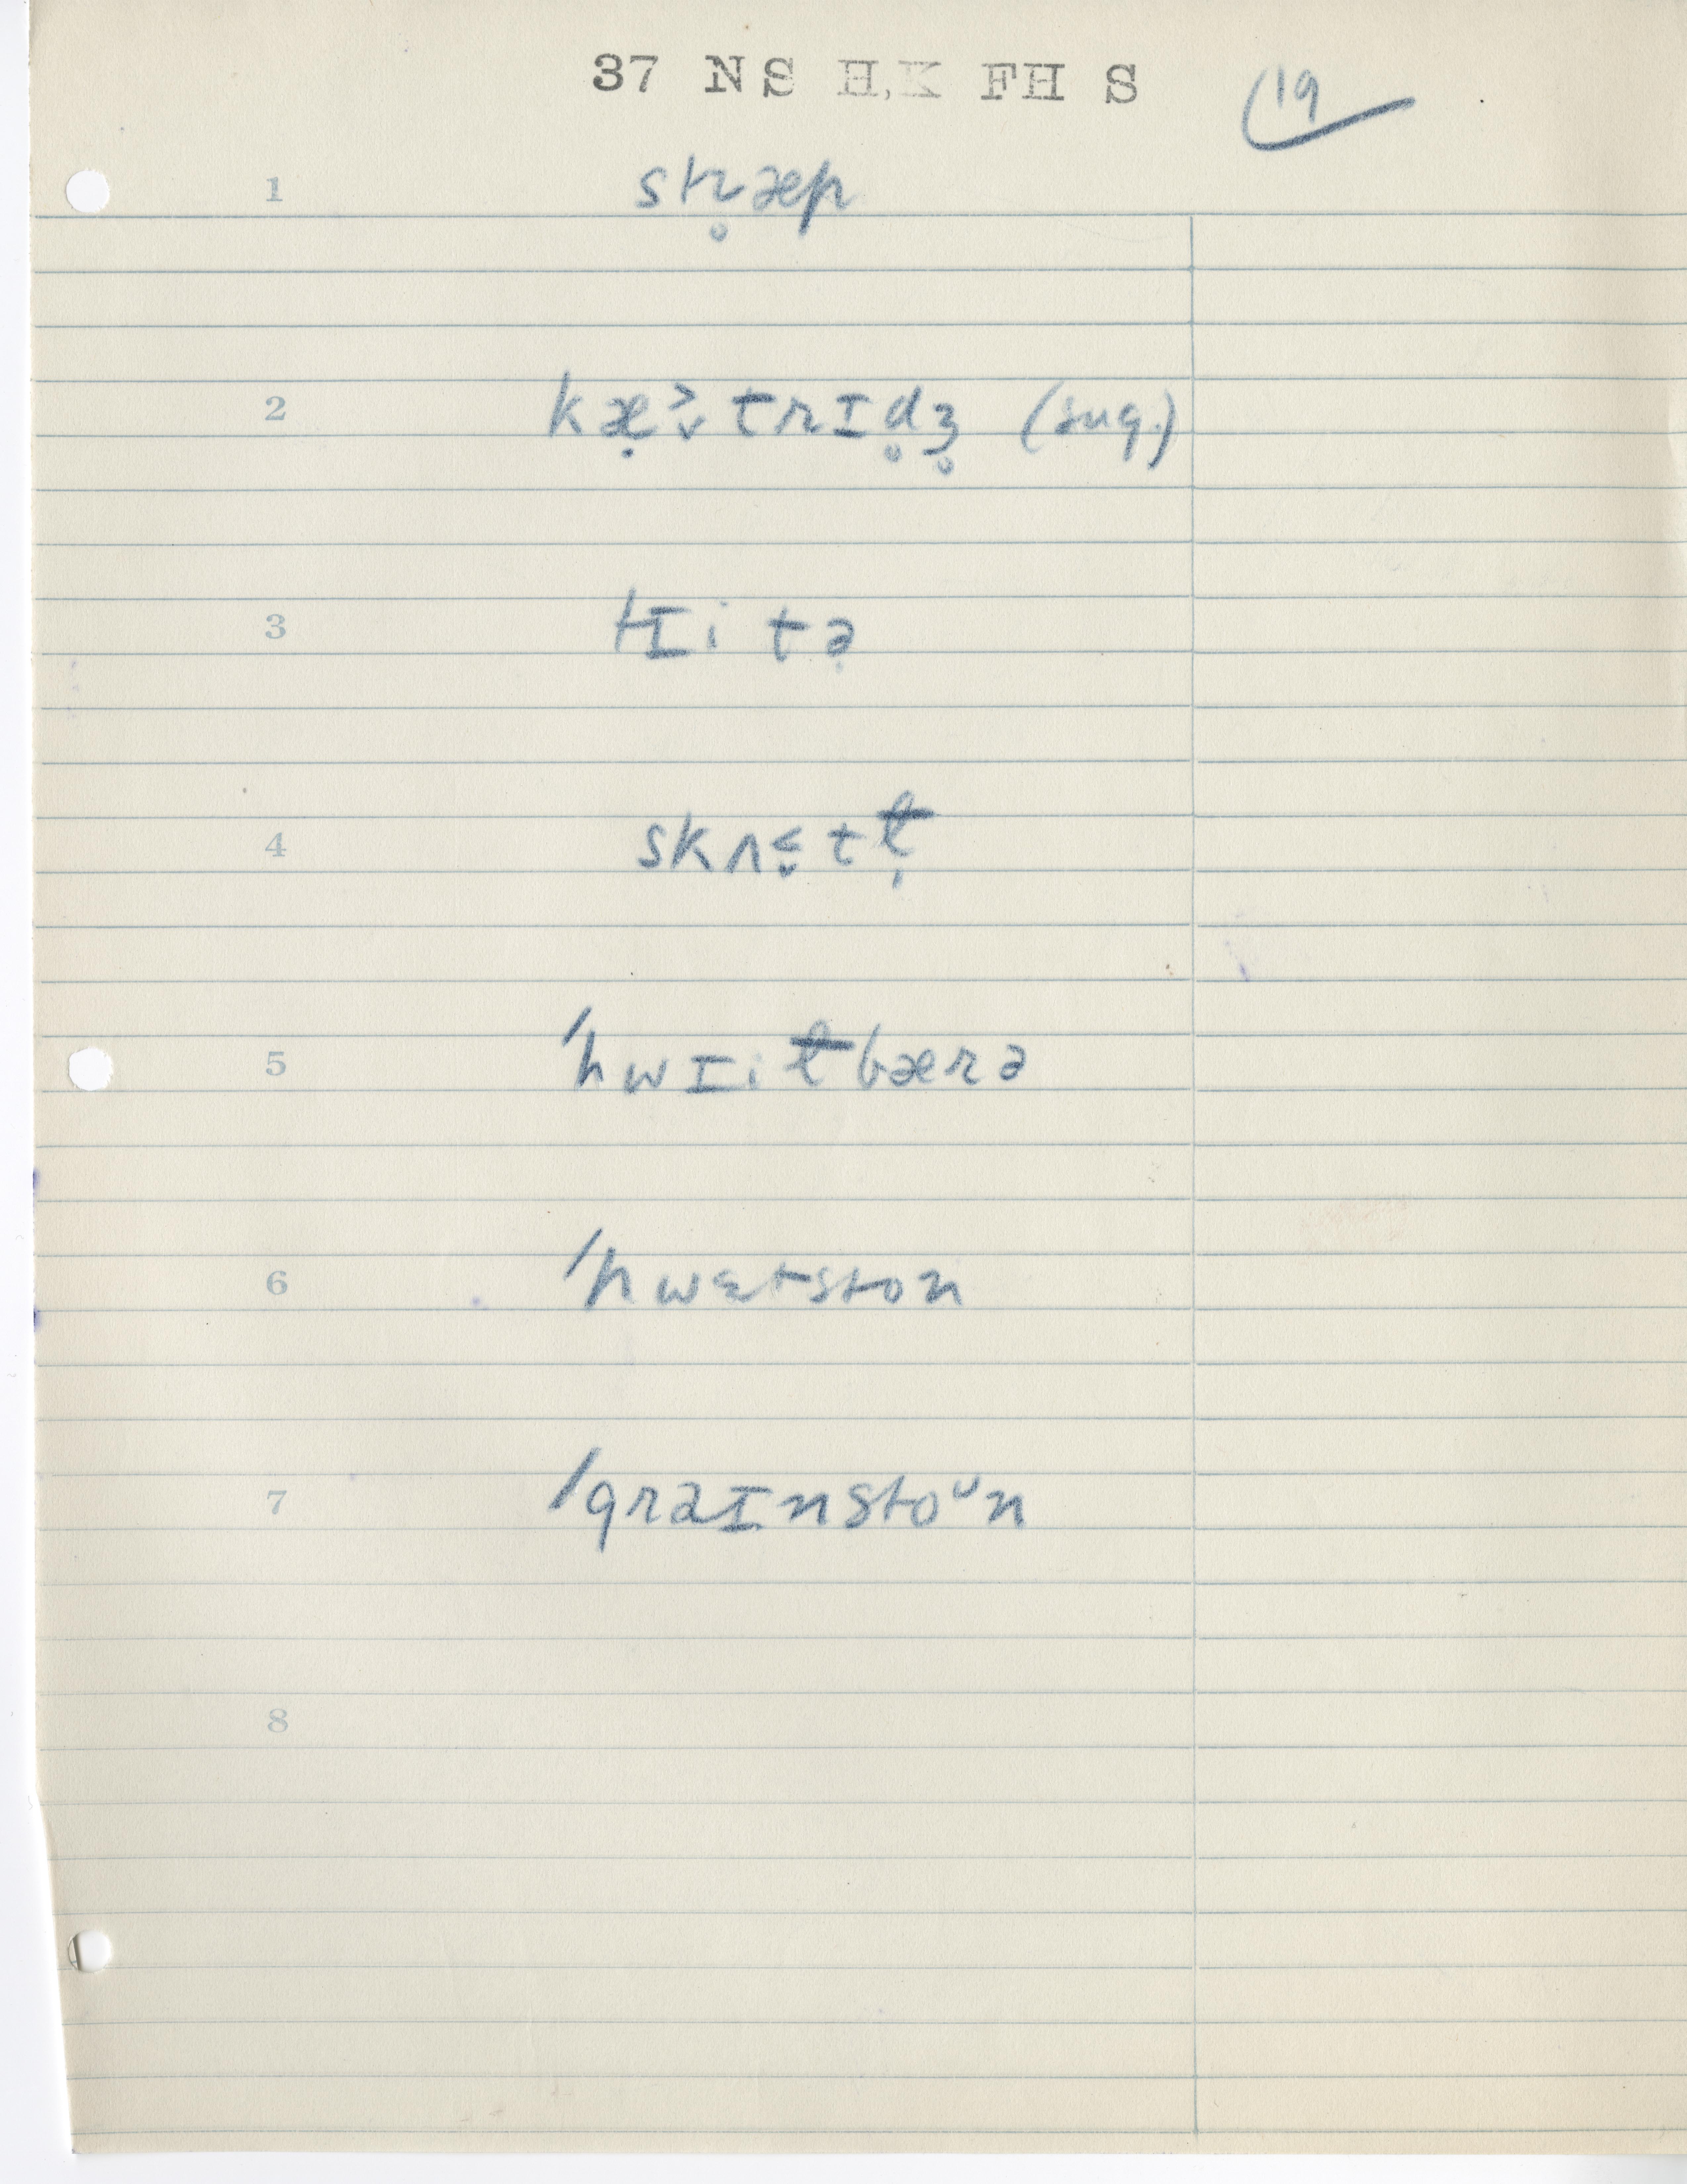 37 NS H,K FH S (19
1 str̥æp
2 kæ̣˃˅trɪd̥ʒ̊ (sug.)
3 tɪitə̣
4 skʌ˂̬tt̴̩
5 ˈhwɪitɫbærə
6 ˈhwɛtston
7 ˈgraɪnstoᵘn
8